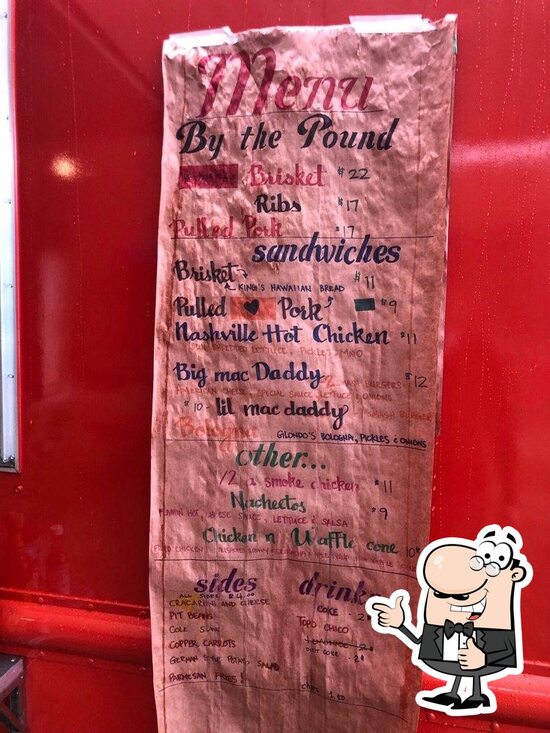 Menu
By the Pound
Brisket $22
Ribs $17
Pulled Pork $17
sandwiches
Brisket $11
KING'S HAWAIIAN BREAD
Pulled Pork $9
Nashville Hot Chicken $11
LETTUCE, PICKLE, MAYO
Big mac Daddy $12
AMERICAN CHEESE, SPECIAL SAUCE, LETTUCE & ONIONS
$10 - lil mac daddy
Bologna
GLONDO'S BOLOGNA, PICKLES & ONIONS
other...
1/2 a smoke chicken $11
Nacheetos $9
FLAMIN HOT, CHEESE SAUCE, LETTUCE & SALSA
Chicken n Waffle cone 10
sides drink
ALL SIDES $4.00
CRACARONI AND CHEESE
COKE
PIT BEANS
TOPO CHICO
COLE SLAW
COPPER CARROTS
DIET COKE - 2
GERMAN STYLE POTATO SALAD
PARMESAN FRIES!
CHIPS 1.50